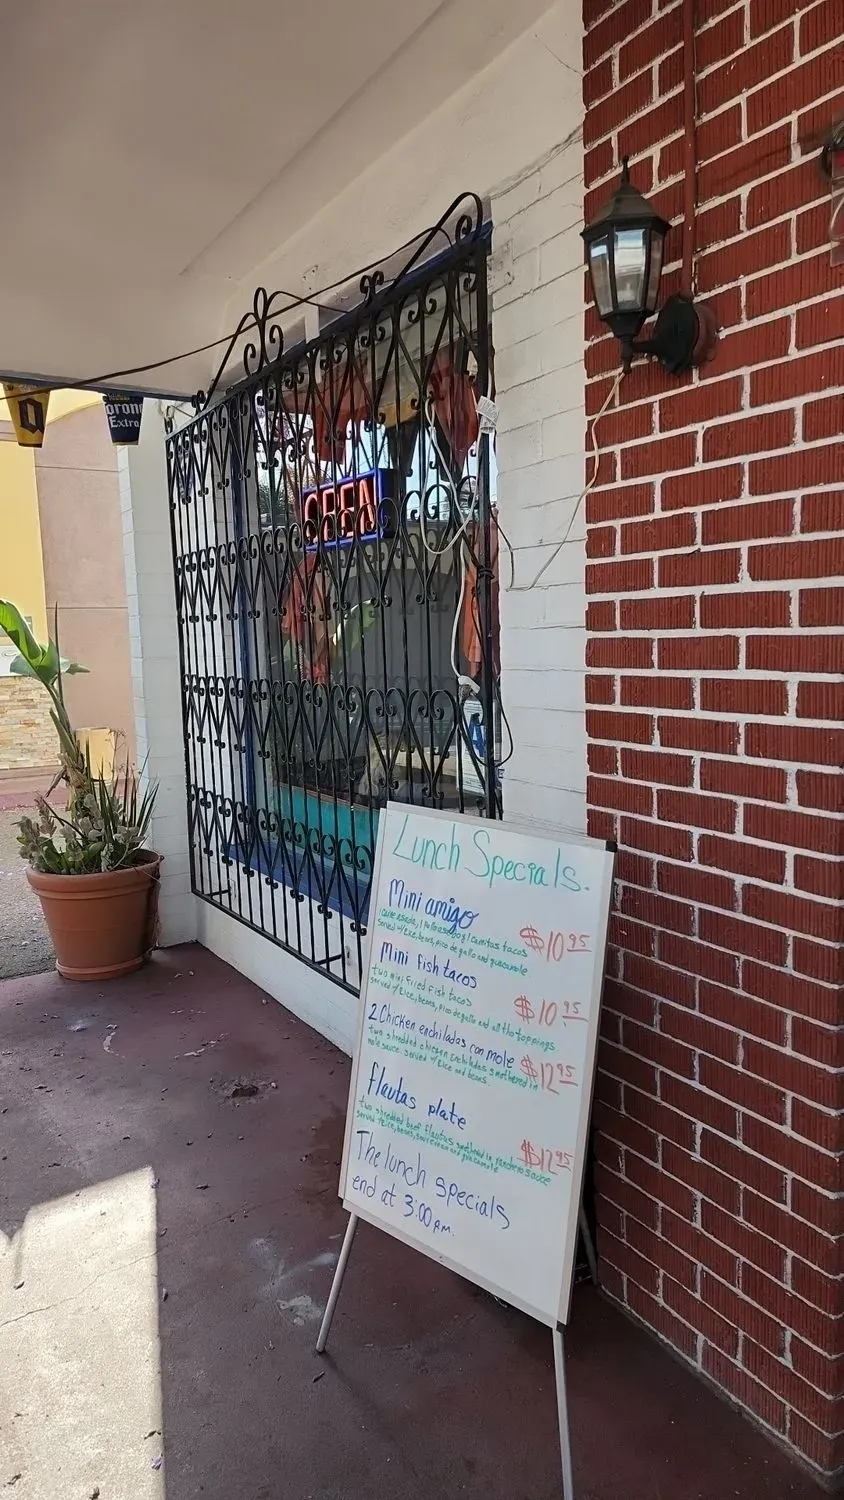 Corona
Extra
OPEN
Lunch Specials.
Mini amigo
1 carne asada, 1 pollo asado y 1 carnitas tacos
served w/rice, beans, pico de gallo and guacamole
$10 95
Mini fish tacos
two mini fried fish tacos
served w/rice, beans, pico de gallo and all the toppings
$10 95
2 Chicken enchiladas con mole
two shredded chicken enchiladas smothered in
mole sauce. served w/rice and beans
$12 95
flautas plate
two shredded beef flautas smothered in ranchero sauce
served w/rice, beans, sour cream and guacamole
$12 95
The lunch specials
end at 3:00 pm.